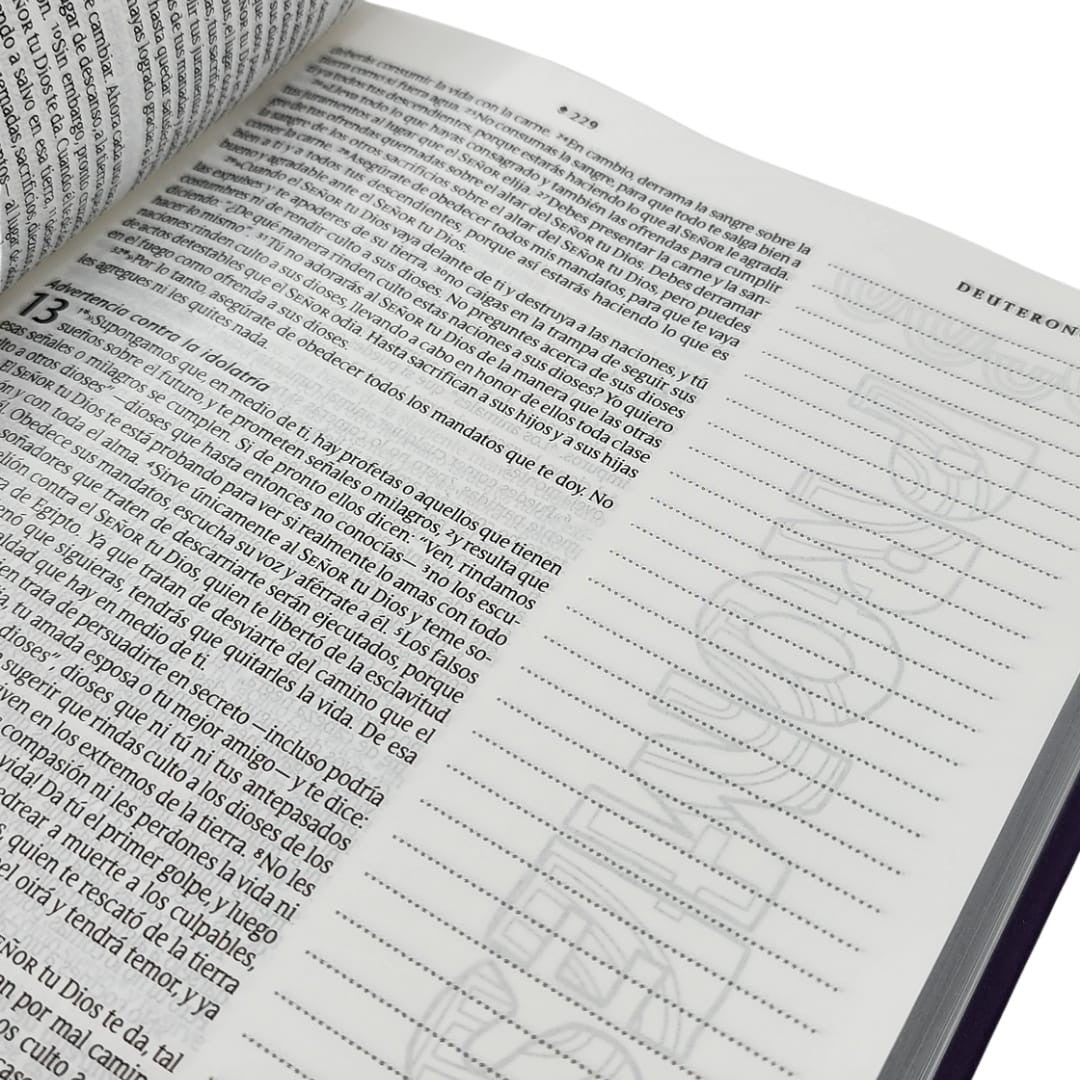 NOR tu Dios te da. Cuando
n. ¹⁰Sin embargo, pronto
gar de descanso, a la tierra
e cambiar. Ahora cada
do a salvo en esa tierra.
◆229
DEUTERON
deberás consumir la vida con la carne. ²⁴En cambio, derrama la sangre sobre la
tierra como si fuera agua. ²⁵No consumas la sangre, para que todo te salga bien a
ti y a todos tus descendientes, porque estarás haciendo lo que al SEÑOR le agrada.
²⁶»Lleva todo lo que hayas consagrado y también las ofrendas para cumplir
tus juramentos al lugar que el SEÑOR elija. ²⁷Debes presentar la carne y la san-
gre de tus ofrendas quemadas sobre el altar del SEÑOR tu Dios. Debes derramar
la sangre de los otros sacrificios sobre el altar del SEÑOR tu Dios, pero puedes
comer la carne. ²⁸Asegúrate de obedecer todos mis mandatos, para que te vaya
bien a ti y a todos tus descendientes, porque así estarás haciendo lo que es
bueno y agradable ante el SEÑOR tu Dios.
²⁹»Cuando el SEÑOR tu Dios vaya delante de ti y destruya a las naciones, y tú
las expulses y te apoderes de su tierra, ³⁰no caigas en la trampa de seguir sus
costumbres ni de rendir culto a sus dioses. No preguntes acerca de sus dioses
diciendo: “¿De qué manera rinden culto estas naciones a sus dioses? Yo quiero
hacer lo mismo”. ³¹Tú no adorarás al SEÑOR tu Dios de la manera que las otras
naciones rinden culto a sus dioses, llevando a cabo en honor de ellos toda clase
de actos detestables que el SEÑOR odia. Hasta sacrifican a sus hijos y a sus hijas
en el fuego como ofrenda a sus dioses.
³²»Por lo tanto, asegúrate de obedecer todos los mandatos que te doy. No
les agregues ni les quites nada.
Advertencia contra la idolatría
13 ¹*»Supongamos que, en medio de ti, hay profetas o aquellos que tienen
sueños sobre el futuro, y te prometen señales o milagros, ²y resulta que
esas señales o milagros se cumplen. Si de pronto ellos dicen: “Ven, rindamos
lto a otros dioses” —dioses que hasta entonces no conocías— ³no los escu-
El SEÑOR tu Dios te está probando para ver si realmente lo amas con todo
n y con toda el alma. ⁴Sirve únicamente al SEÑOR tu Dios y teme so-
Obedece sus mandatos, escucha su voz y aférrate a él. ⁵Los falsos
soñadores que traten de descarriarte serán ejecutados, porque
elión contra el SEÑOR tu Dios, quien te libertó de la esclavitud
ra de Egipto. Ya que tratan de desviarte del camino que el
enó que siguieras, tendrás que quitarles la vida. De esa
aldad que hay en medio de ti.
ien trata de persuadirte en secreto —incluso podría
a, tu amada esposa o tu mejor amigo— y te dice:
dioses”, dioses que ni tú ni tus antepasados
sugerir que rindas culto a los dioses de los
ven en los extremos de la tierra. ⁸No les
compasión ni les perdones la vida ni
vida! Da tú el primer golpe, y luego
edrear a muerte a los culpables,
s, quien te rescató de la tierra
el oirá y tendrá temor, y ya
EÑOR tu Dios te da, tal
an por mal camin
os culto a